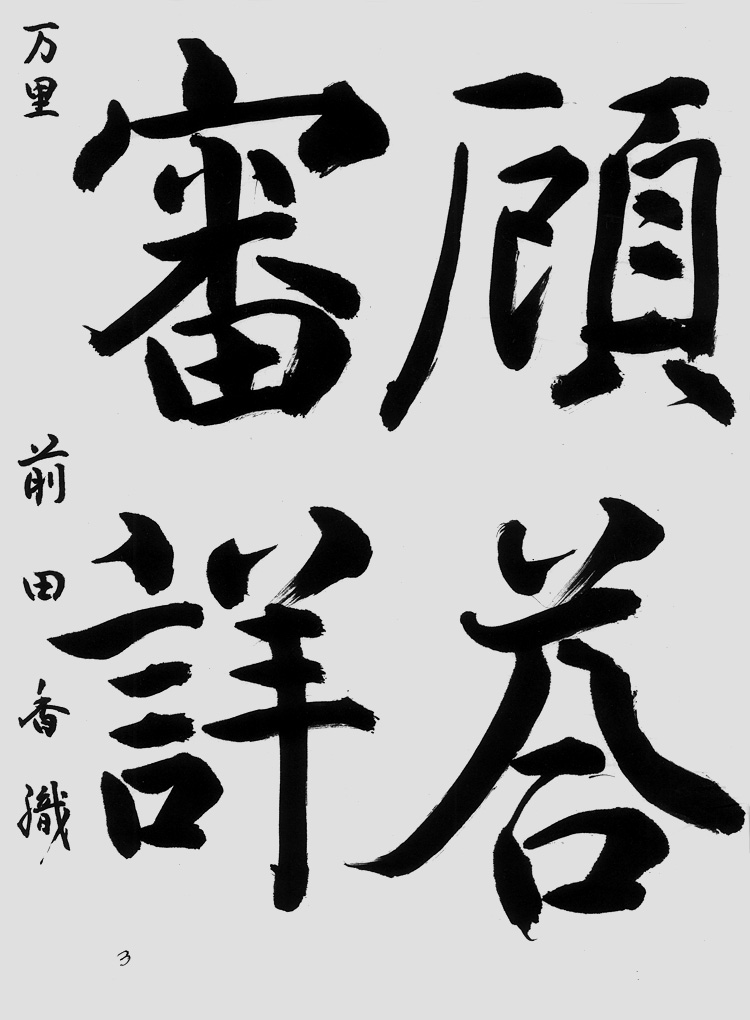 顧答
審詳
万里 前田香織
3